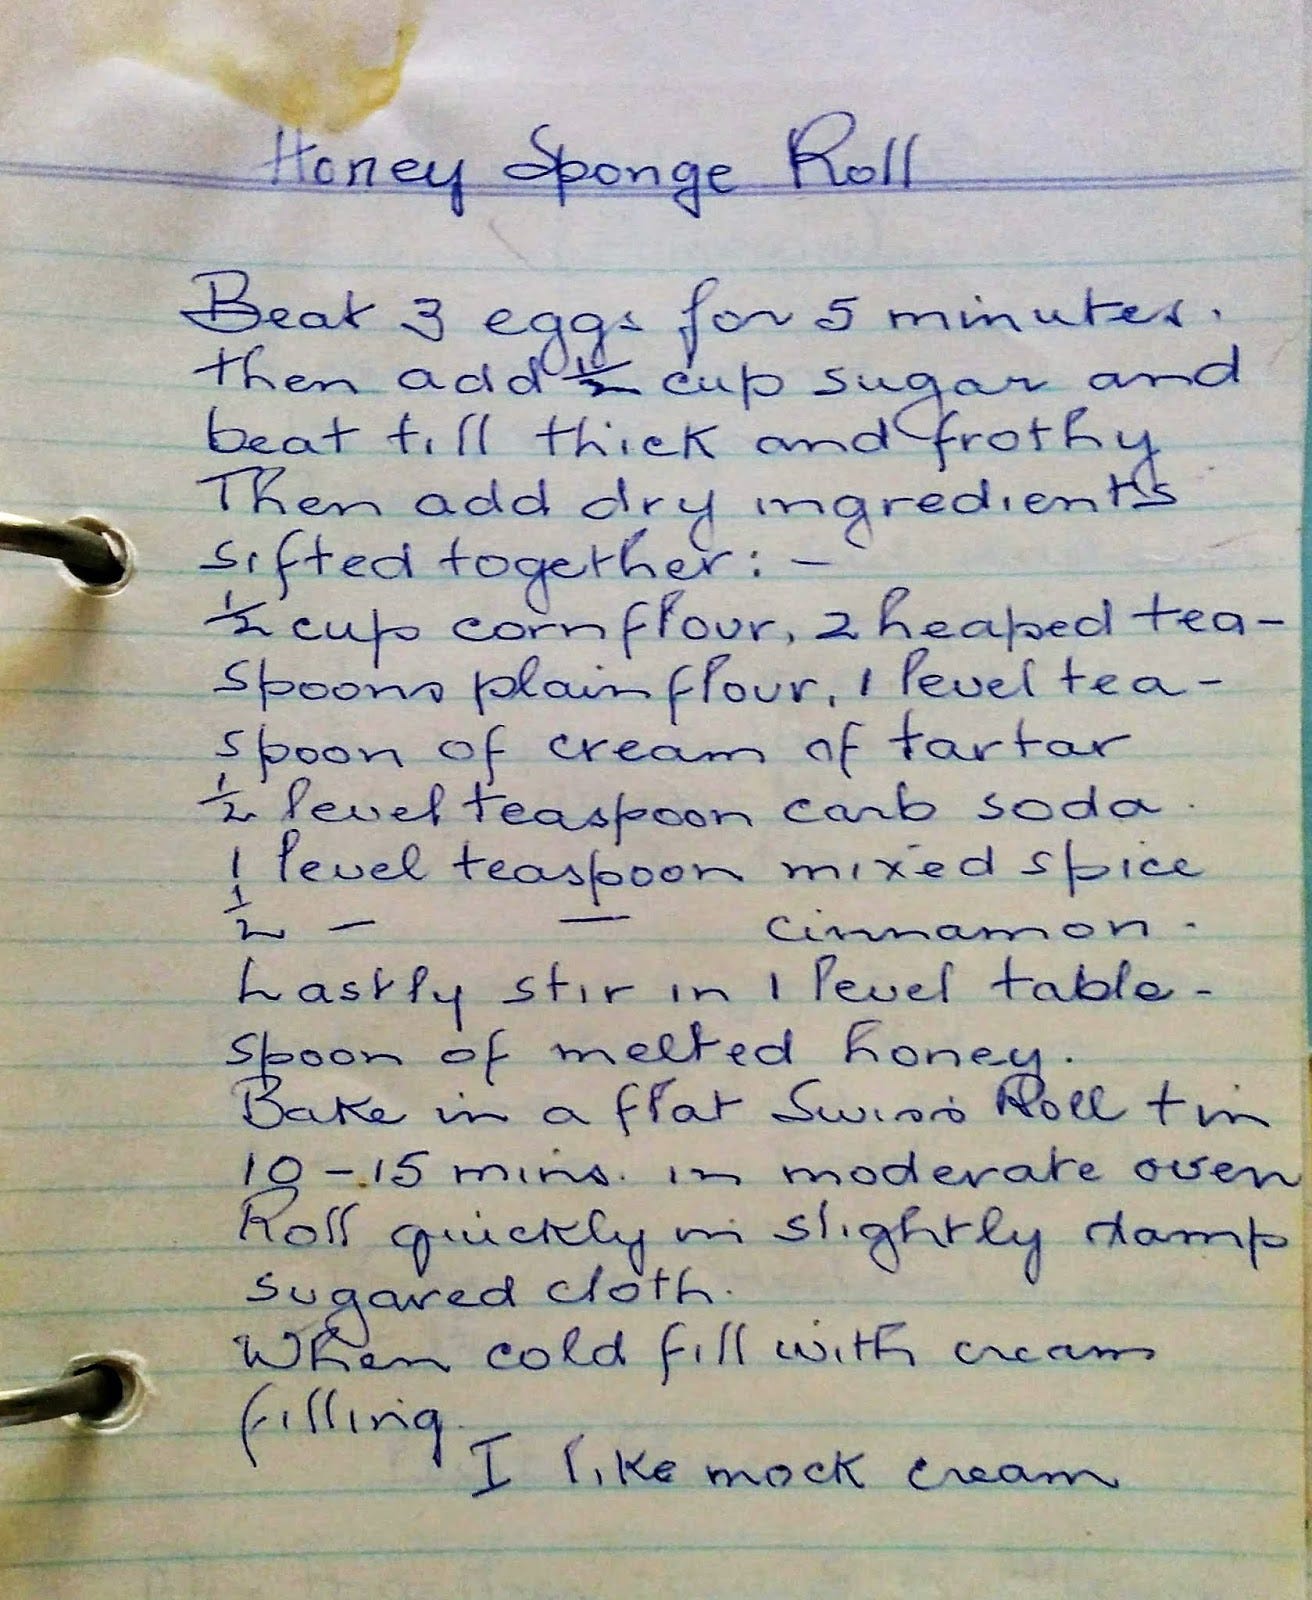 Honey Sponge Roll
Beat 3 eggs for 5 minutes.
then add ½ cup sugar and
beat till thick and frothy
Then add dry ingredients
sifted together: -
½ cup cornflour, 2 heaped tea-
spoons plain flour, 1 level tea-
spoon of cream of tartar
½ level teaspoon carb soda.
1 level teaspoon mixed spice
½ - — cinnamon.
Lastly stir in 1 level table-
spoon of melted honey.
Bake in a flat Swiss Roll tin
10-15 mins. in moderate oven
Roll quickly in slightly damp
sugared cloth.
When cold fill with cream
filling.
I like mock cream